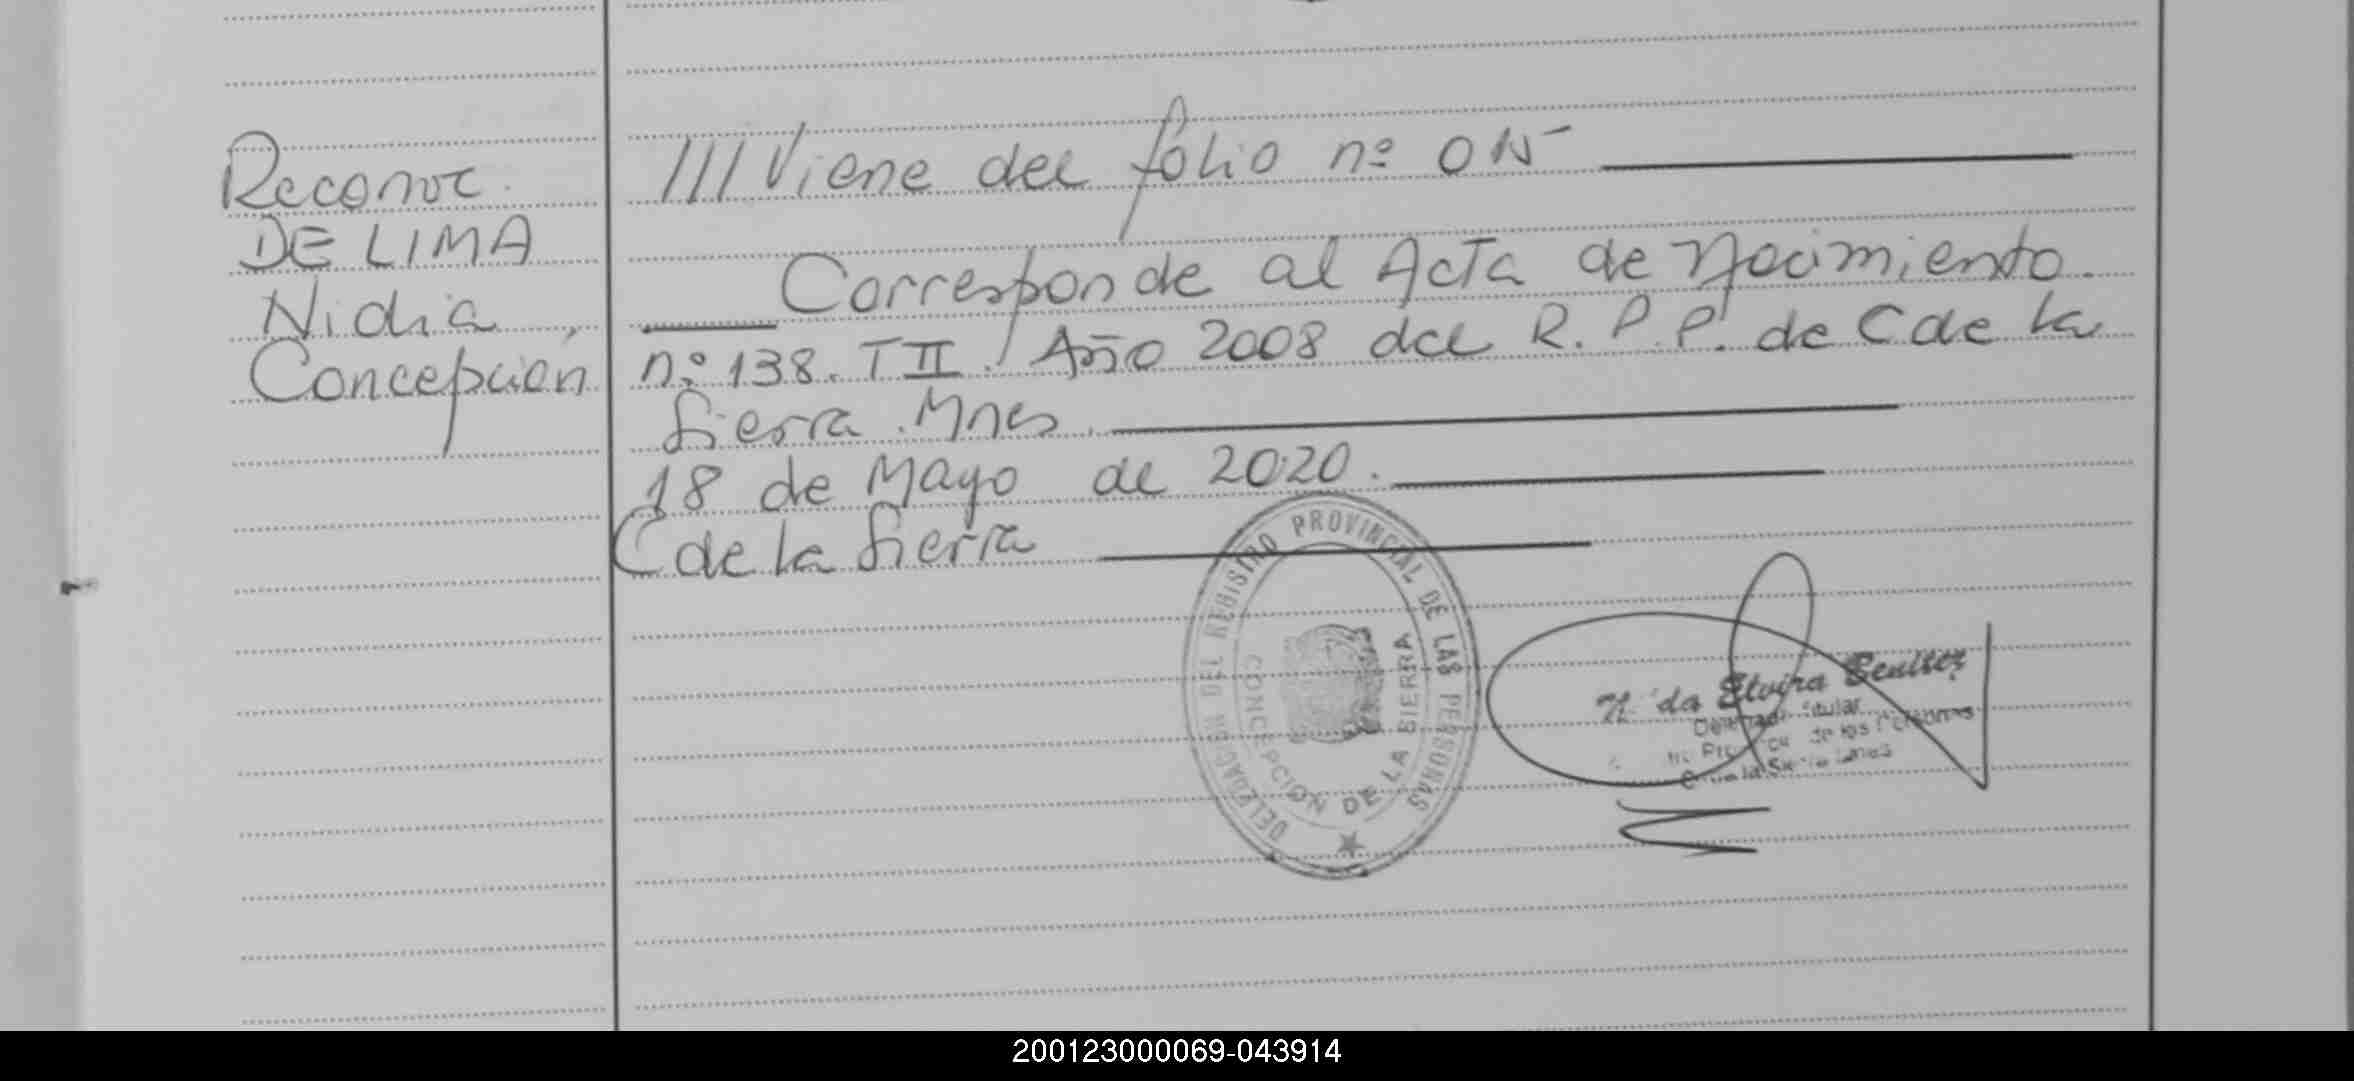 Reconoc.
DE LIMA
Nidia
Concepción
///Viene del folio nº 015
Corresponde al Acta de Nacimiento
nº 138. T II. Año 2008 del R.P.P. de C de la
Sierra Mnes.
18 de Mayo de 2020.
C de la Sierra
DELEGACION DEL REGISTRO PROVINCIAL DE LAS PERSONAS
CONCEPCION DE LA SIERRA
Elvira Benitez
Titular
de las Personas
200123000069-043914